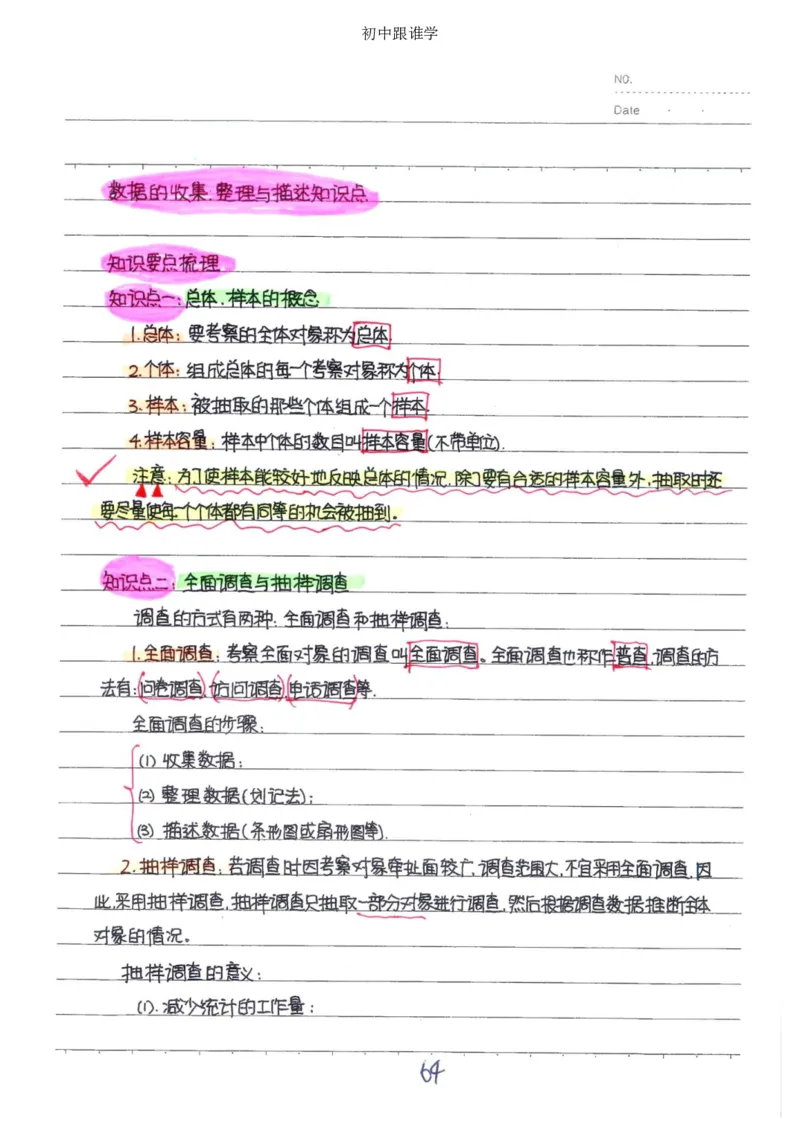 初中跟谁学
NO.
Date
数据的收集.整理与描述知识点
知识要点梳理
知识点一:总体.样本的概念
1.总体:要考察的全体对象称为总体.
2.个体:组成总体的每一个考察对象称为个体.
3.样本:被抽取的那些个体组成一个样本.
4.样本容量:样本中个体的数目叫样本容量(不带单位).
注意:为了使样本能较好地反映总体的情况,除了要有合适的样本容量外,抽取时还
要尽量使每一个个体都有同等的机会被抽到。
知识点二:全面调查与抽样调查
调查的方式有两种:全面调查和抽样调查:
1.全面调查:考察全面对象的调查叫全面调查。全面调查也称作普查,调查的方
法有:问卷调查,访问调查,电话调查等.
全面调查的步骤:
(1)收集数据;
(2)整理数据(划记法);
(3)描述数据(条形图或扇形图等).
2.抽样调查:若调查时因考察对象牵扯面较广,调查范围大,不宜采用全面调查,因
此,采用抽样调查,抽样调查只抽取一部分对象进行调查,然后根据调查数据推断全体
对象的情况。
抽样调查的意义:
(1).减少统计的工作量;
64